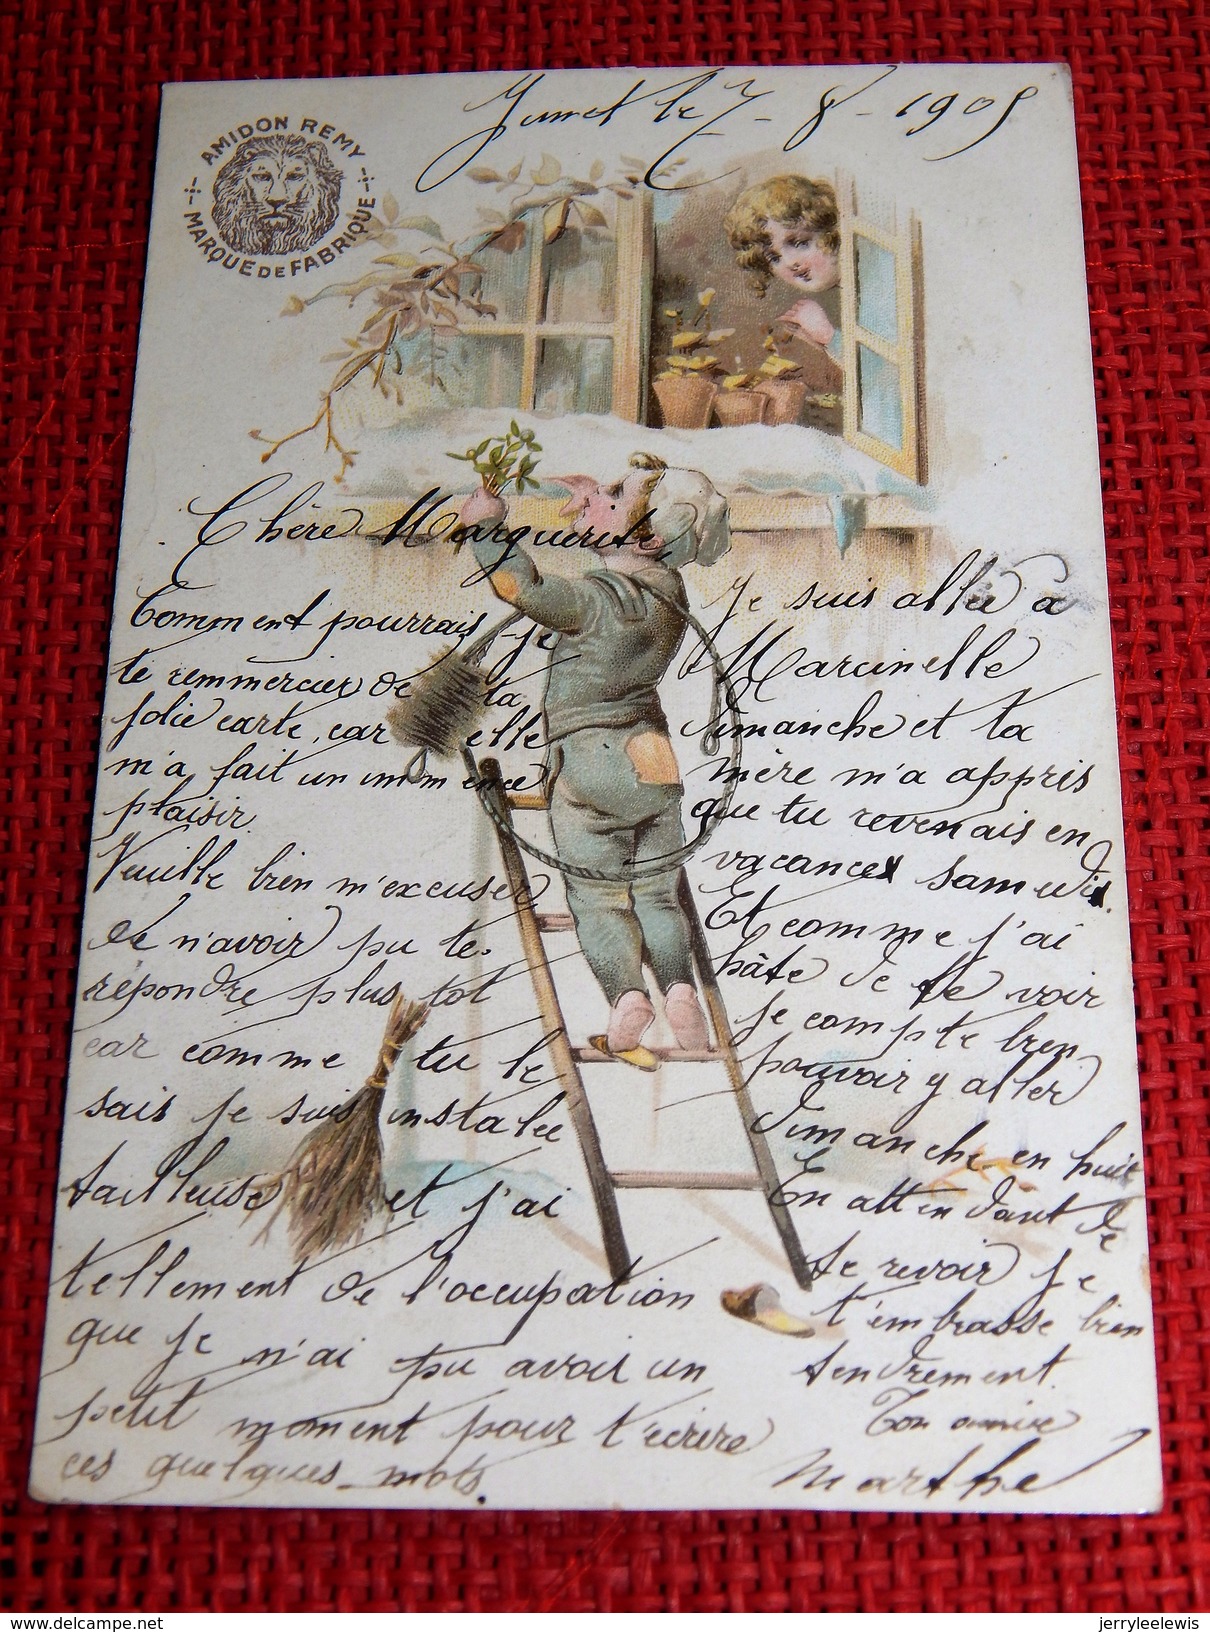 Jumet le 7 - 8 - 1905
AMIDON REMY
MARQUE DE FABRIQUE
Chère Marguerite,
Comment pourrais-je
te remmercier de ta
jolie carte, car elle
m'a fait un immence
plaisir.
Veuille bien m'excuser
de n'avoir pu te
répondre plus tot
car comme tu le
sais je suis instalée
tailleuse et j'ai
tellement de l'occupation
que je n'ai pu avoir un
petit moment pour t'écrire
ces quelques mots.
Je suis allée à
Marcinelle
dimanche et ta
mère m'a appris
que tu revenais en
vacances samedi.
Et comme j'ai
hâte de te voir
je compte bien
pouvoir y aller
dimanche en huit
En attendant de
te revoir je
t'embrasse bien
tendrement.
Ton amie
Marthe
delcampe.net
jerryleelewis